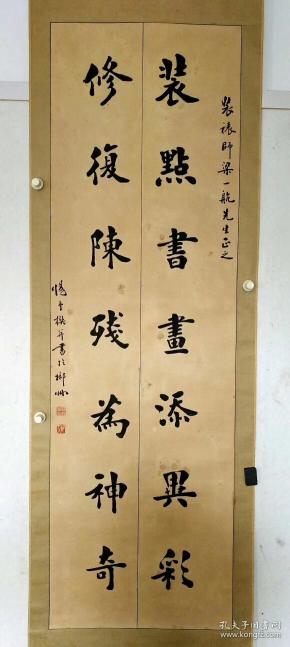 裝裱師梁一航先生正之
裝點書畫添異彩
修復陳殘為神奇
撰并書於柳州
孔夫子旧书网